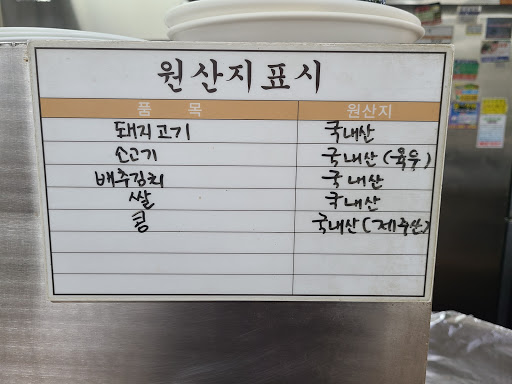 원산지표시
품 목 원산지
돼지고기 국내산
소고기 국내산(육우)
배추김치 국내산
쌀 국내산
콩 국내산(제주산)